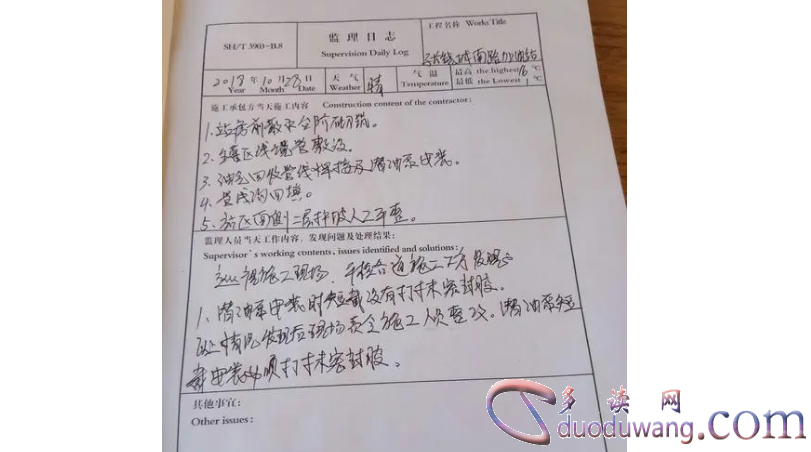 SH/T 3903-B.8
监理日志
Supervision Daily Log
工程名称 Works Title
城南路加油站
2018年10月28日
Year Month Date
天气 晴
Weather
气温
Temperature
最高 the highest 16 ℃
最低 the Lowest 1 ℃
施工承包方当天施工内容 Construction content of the contractor:
1.站房前散水台阶砌筑。
2.罐区线缆管敷设。
3.油气回收管线焊接及潜油泵安装。
4.管线沟回填。
5.站区西侧二层护坡人工平整。
监理人员当天工作内容,发现问题及处理结果:
Supervisor's working contents, issues identified and solutions:
巡视施工现场,检查各道施工工序
1.潜油泵安装时短截没有打抹密封胶。
此情况发现后现场责令施工人员整改。潜油泵短
截安装必须打抹密封胶。
其他事宜:
Other issues:
多读网
duoduwang.com